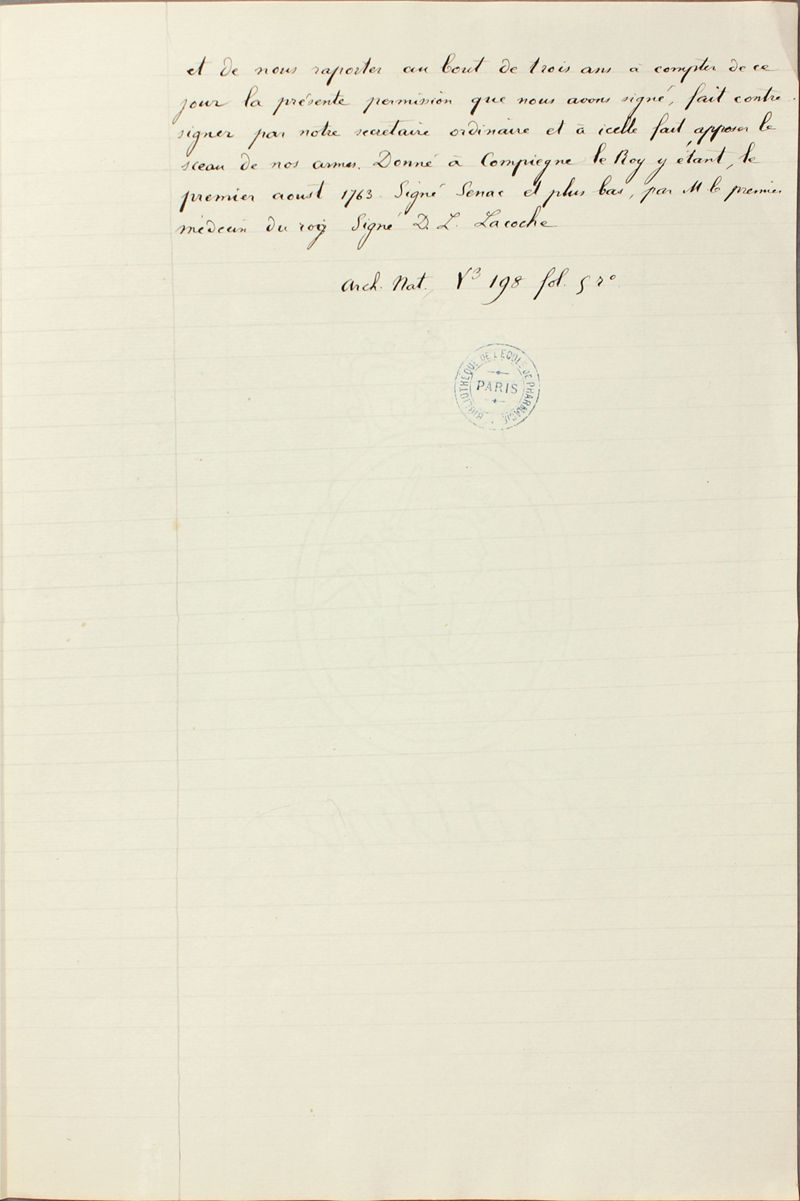 et de nous raporter au bout de trois ans à compter de ce
jour la présente permission que nous avons signé, fait contre
signer par notre secretaire ordinaire et à icelle fait apposer le
sceau de nos armes. Donné à Compiegne le Roy y étant, le
premier aoust 1763. Signé Senac et plus bas, par M le premier
médecin du roy Signé D. L. Lacoche
Arch. Nat. V³ 198 fol. 5 r°
BIBLIOTHÈQUE DE L'ECOLE DE PHARMACIE
PARIS